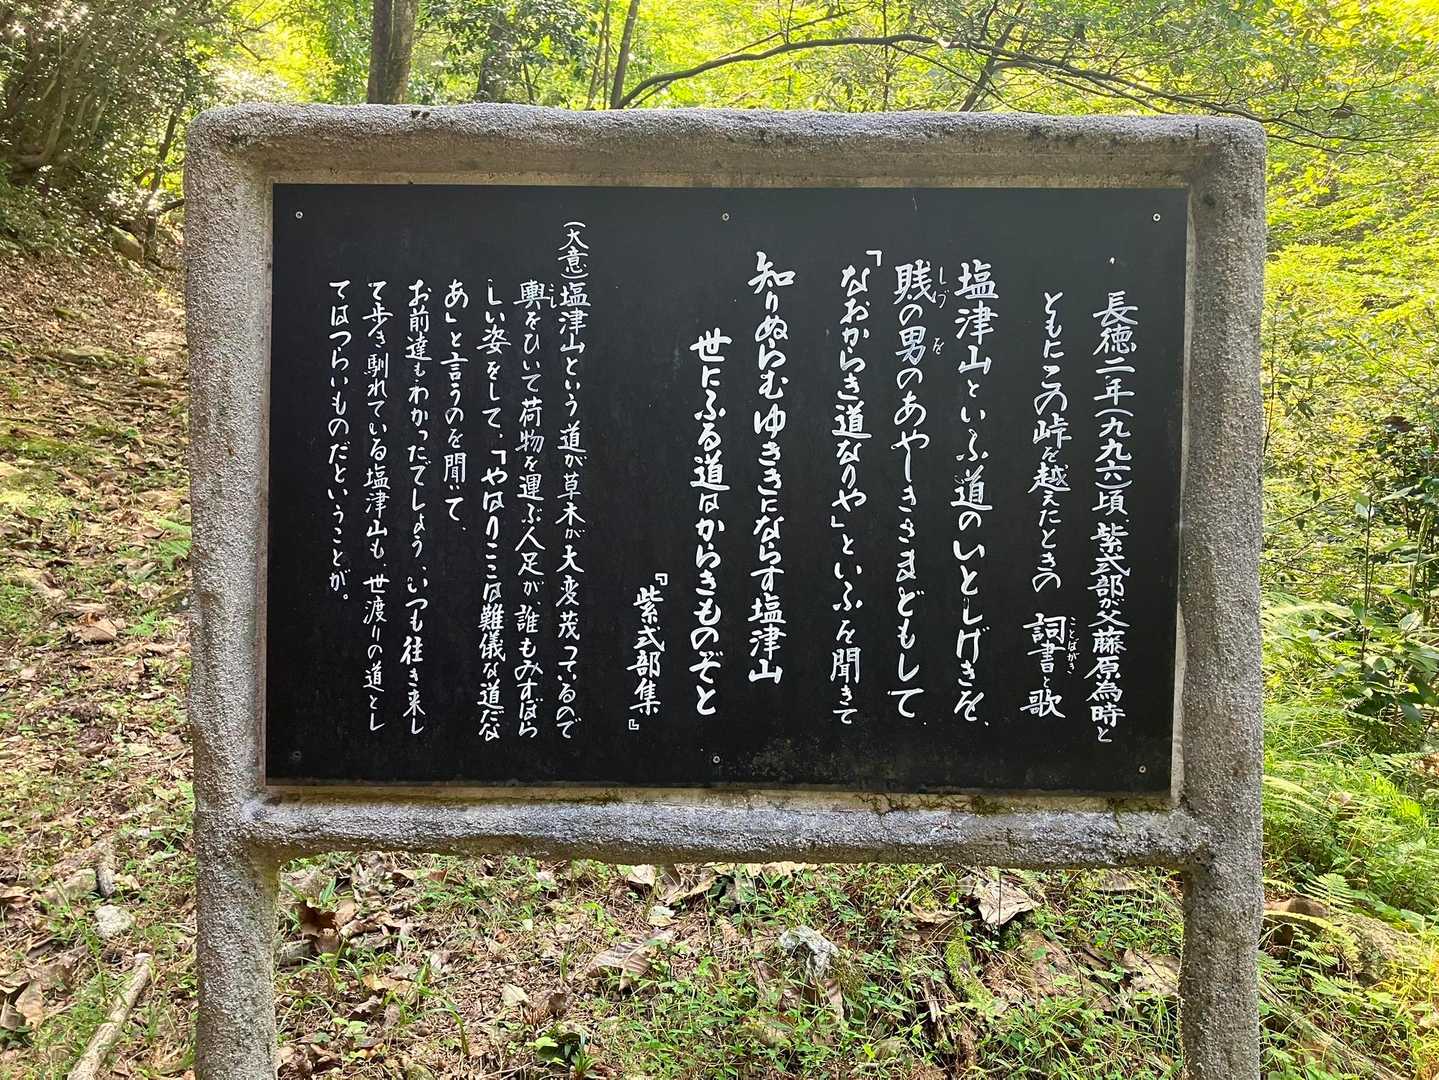 長徳二年(九九六)頃、紫式部が父藤原為時と
ともにこの峠を越えたときの 詞書と歌
ことばがき
塩津山といふ道のいとしげきを、
賎の男のあやしきさまどもして、
しづ
を
「なおからき道なりや」といふを聞きて
知りぬらむゆききにならす塩津山
世にふる道はからきものぞと
『紫式部集』
(大意)塩津山という道が草木が大変茂っているので
輿をひいて荷物を運ぶ人足が、誰もみすぼら
こし
しい姿をして、「やはりここは難儀な道だな
あ」と言うのを聞いて、
お前達もわかったでしょう、いつも往き来し
て歩き馴れている塩津山も、世渡りの道とし
てはつらいものだということが。